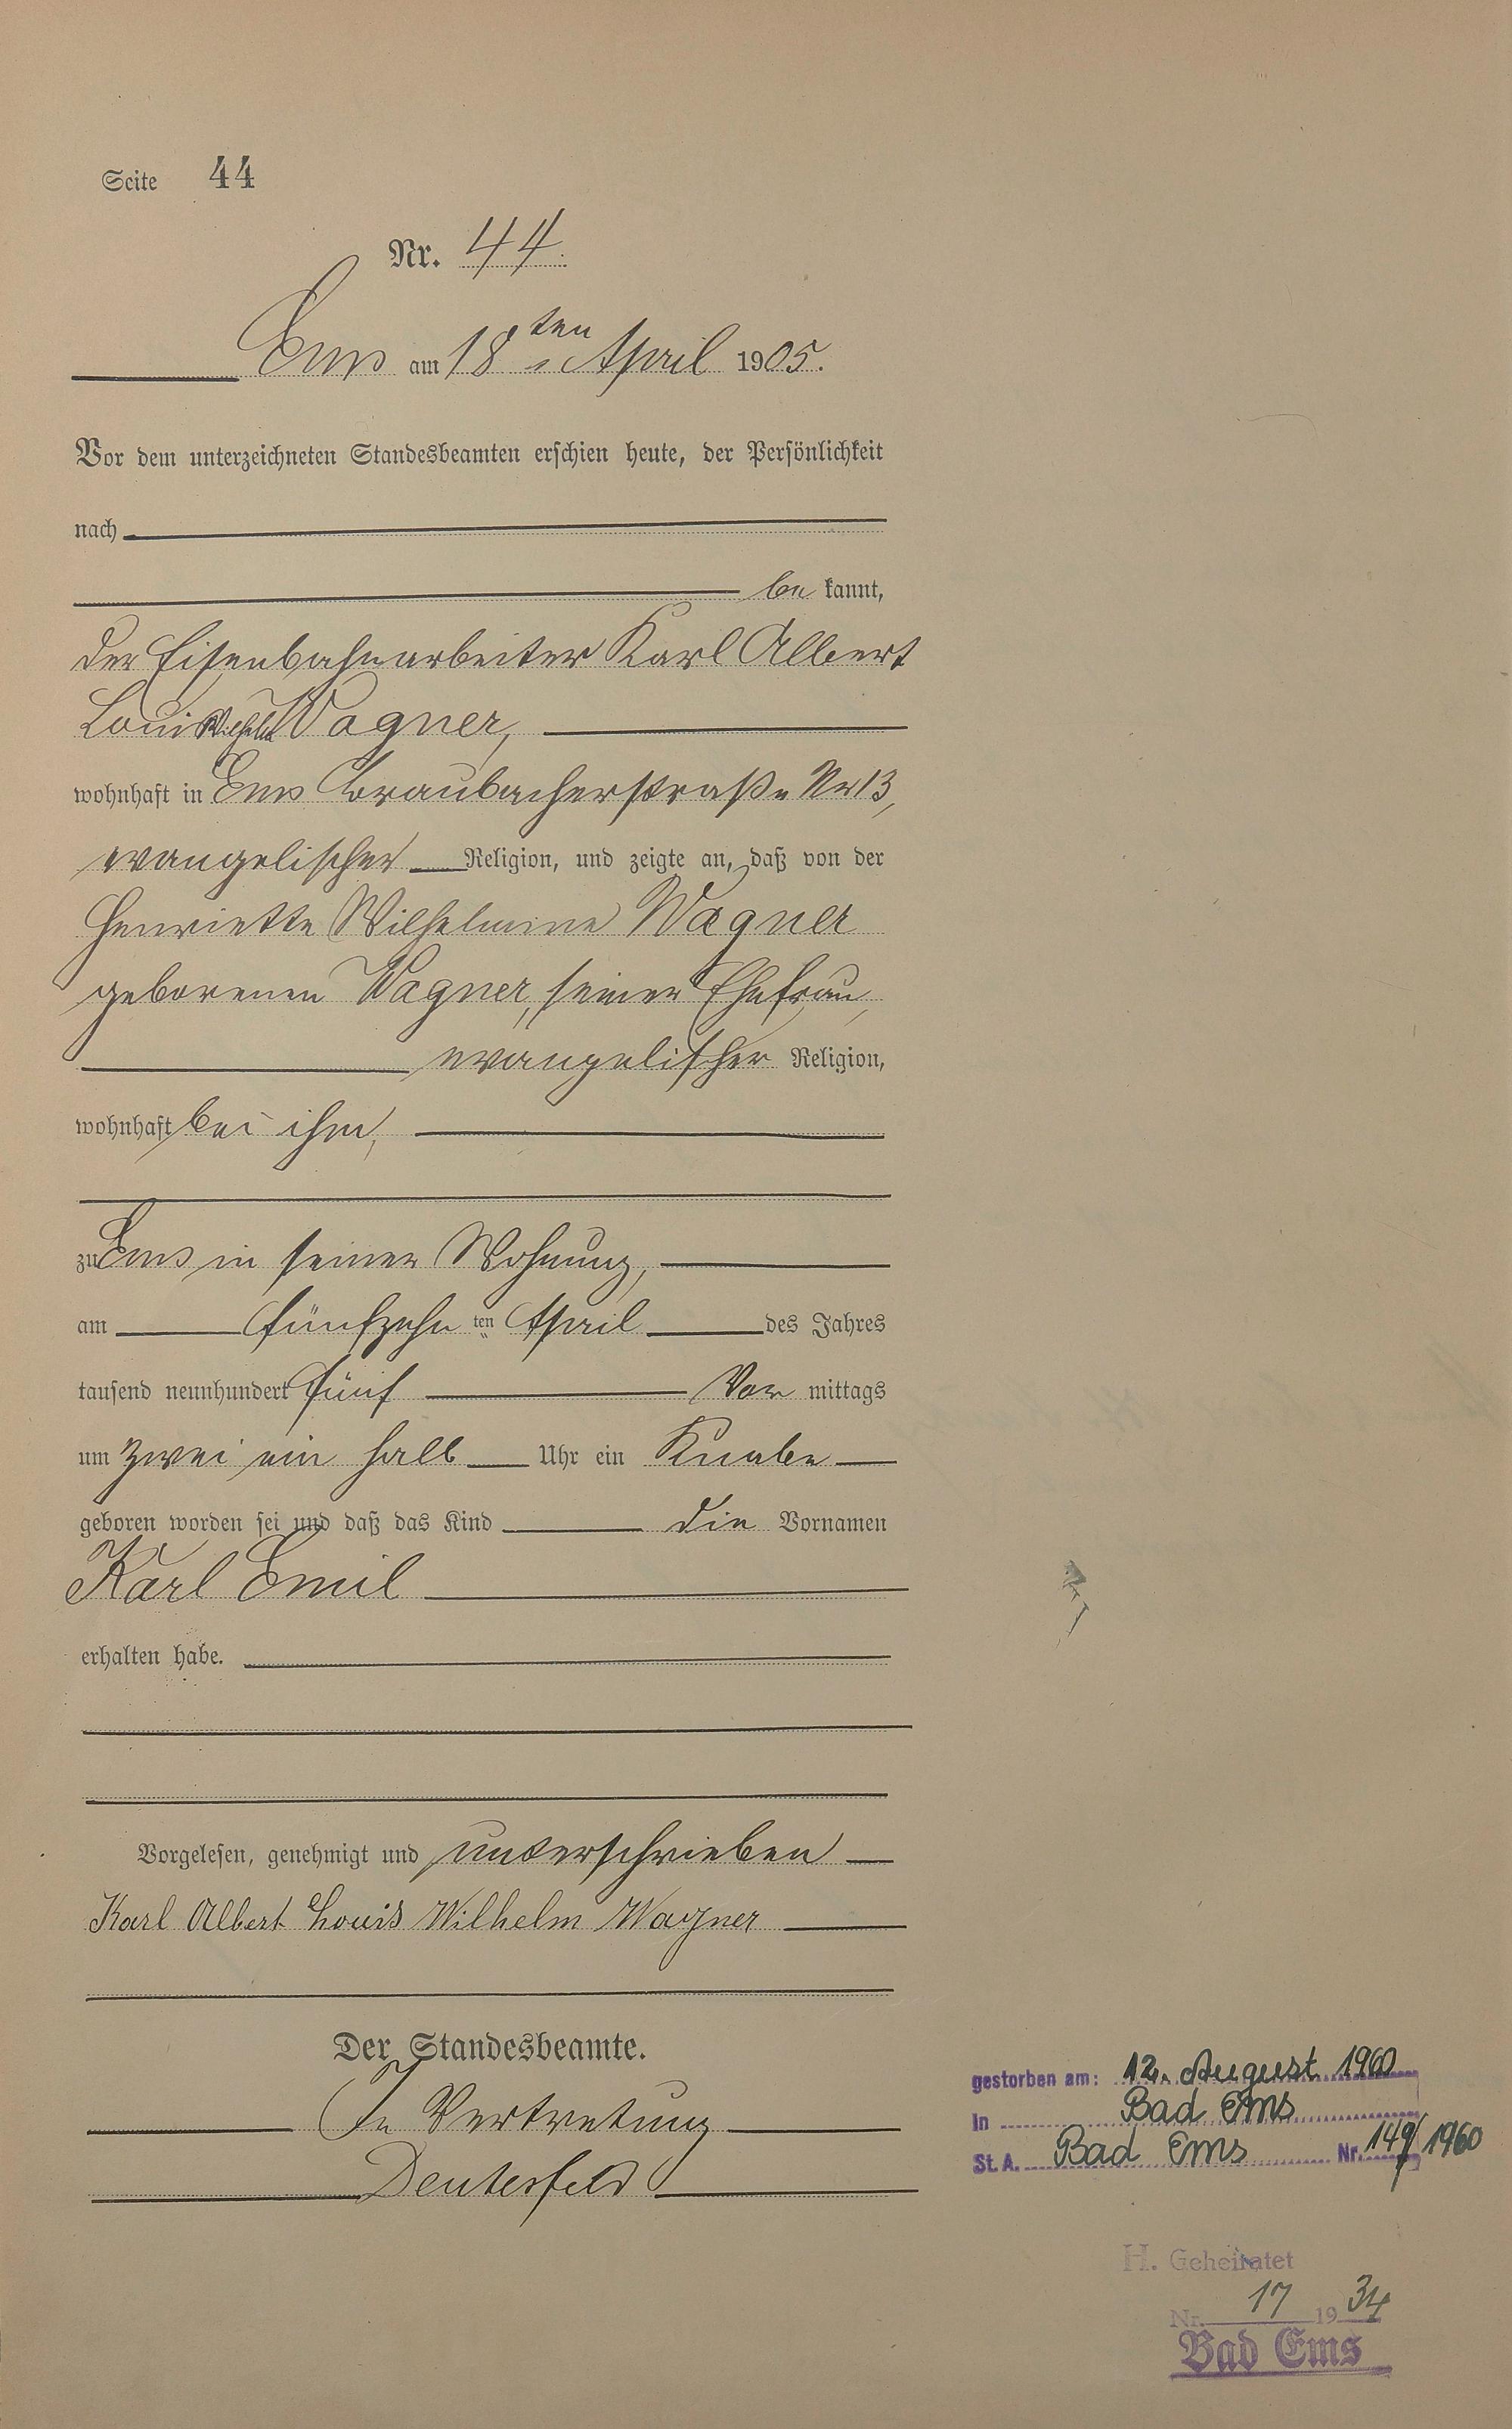 Seite 44
Nr. 44.
Ems am 18ten April 1905.
Vor dem unterzeichneten Standesbeamten erschien heute, der Persönlichkeit
nach
be kannt,
der Eisenbahnarbeiter Karl Albert
Louis Wilhelm Wagner,
wohnhaft in Ems Braubacherstraße Nr 13,
evangelischer Religion, und zeigte an, daß von der
Henriette Wilhelmine Wagner
geborenen Wagner, seiner Ehefrau,
evangelischer Religion,
wohnhaft bei ihm,
zu Ems in seiner Wohnung,
am fünfzehn ten April des Jahres
tausend neunhundert fünf Vor mittags
um zwei ein halb Uhr ein Knabe
geboren worden sei und daß das Kind die Vornamen
Karl Emil
erhalten habe.
Vorgelesen, genehmigt und unterschrieben
Karl Albert Louis Wilhelm Wagner
Der Standesbeamte.
In Vertretung
Deutesfeld
gestorben am: 12. August 1960
in Bad Ems
St. A. Bad Ems Nr. 149/1960
H. Geheiratet
Nr. 17 1934
Bad Ems